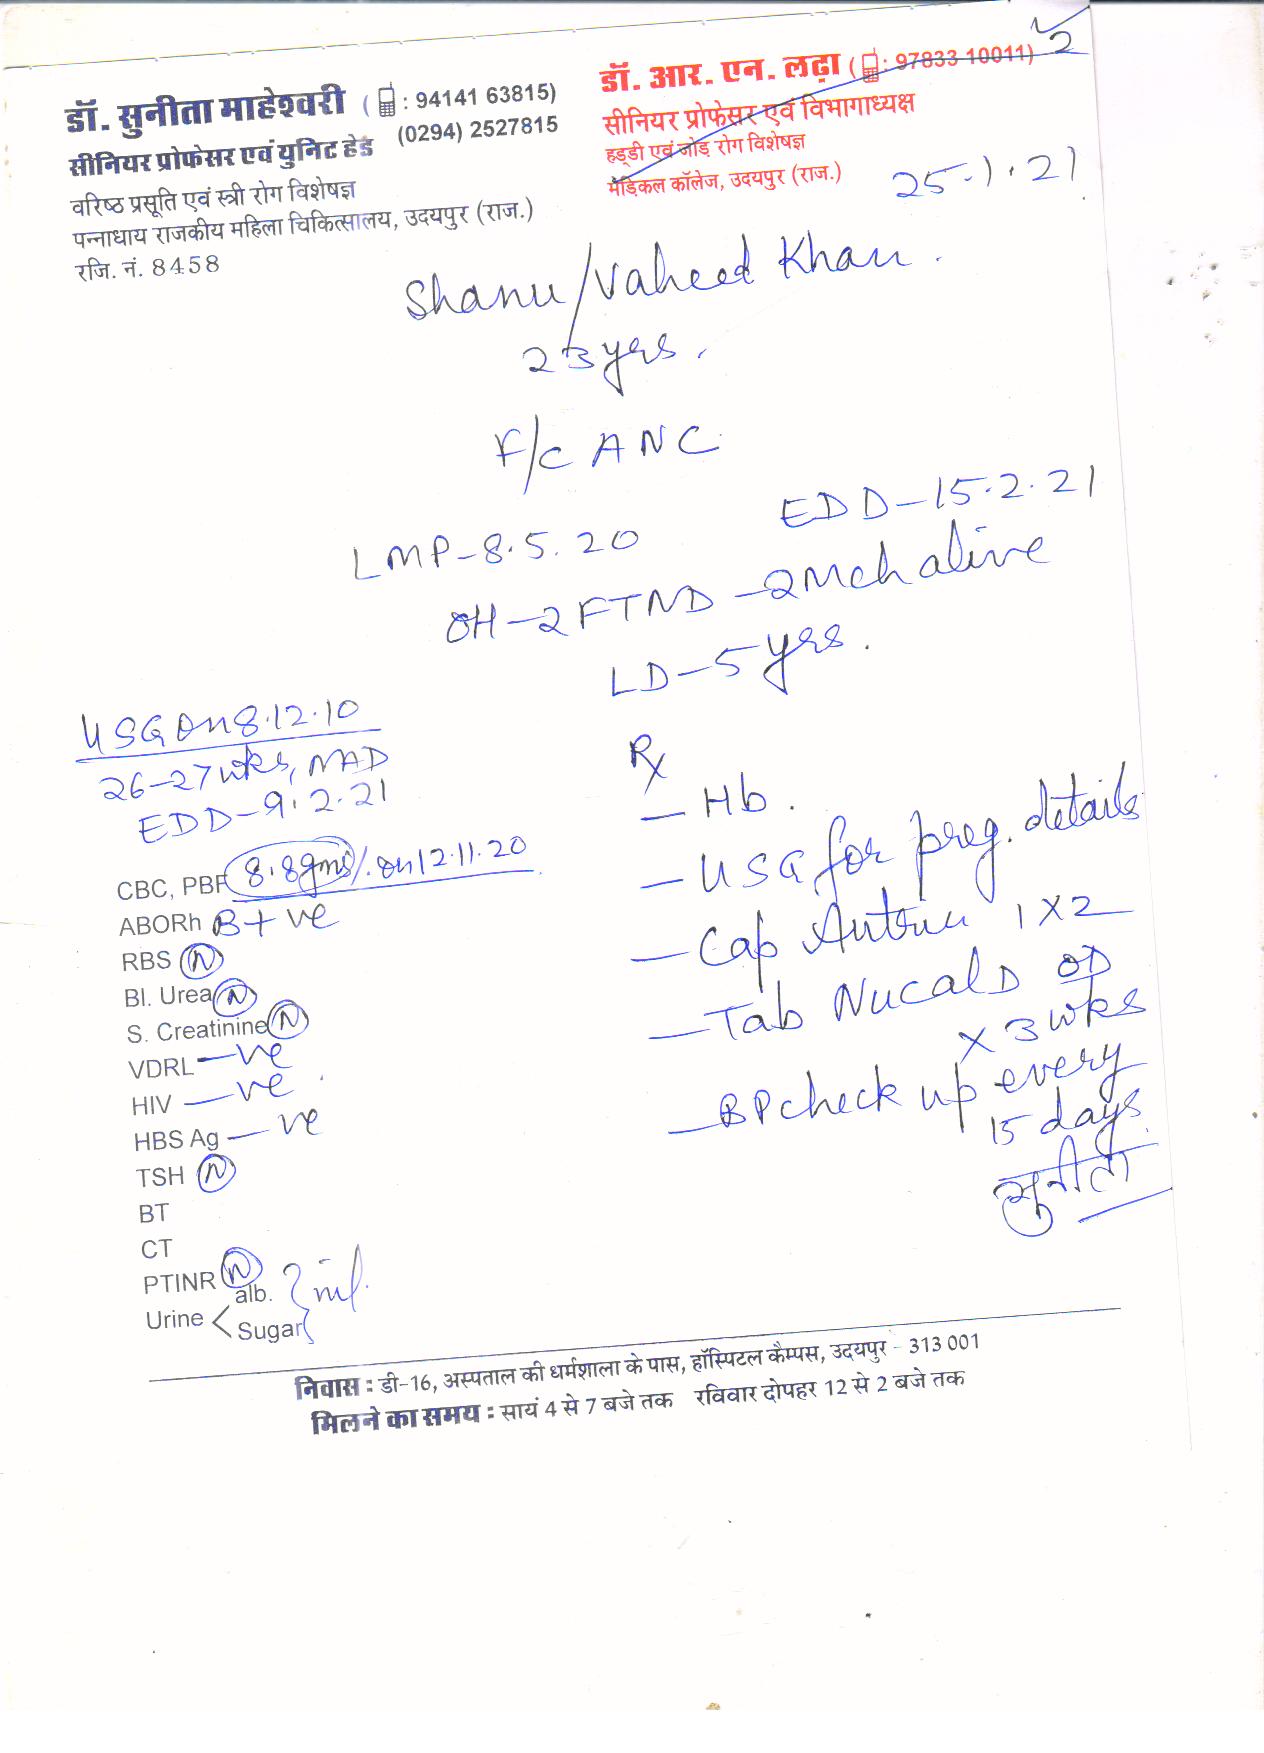 डॉ. सुनीता माहेश्वरी ( : 94141 63815)
(0294) 2527815
सीनियर प्रोफेसर एवं युनिट हेड
वरिष्ठ प्रसूति एवं स्त्री रोग विशेषज्ञ
पन्नाधाय राजकीय महिला चिकित्सालय, उदयपुर (राज.)
रजि. नं. 8458
डॉ. आर. एन. लढ़ा ( : 97833 10011)
सीनियर प्रोफेसर एवं विभागाध्यक्ष
हड्डी एवं जोड़ रोग विशेषज्ञ
मेडिकल कॉलेज, उदयपुर (राज.)
25.1.21
Shanu/Vaheed Khan.
23yrs.
F/c ANC
LMP-8.5.20 EDD-15.2.21
OH-2FTND-2Mch alive
LD-5yrs.
USG on 8.12.10
26-27wks, NAD
EDD-9.2.21
CBC, PBF 8.8gms/. on 12.11.20
ABORh B+ve
RBS N
Bl. Urea N
S. Creatinine N
VDRL -ve
HIV -ve
HBS Ag -ve
TSH N
BT
CT
PTINR N
Urine < alb. } nil.
Sugar
Rx
- Hb.
- USG for preg. details
- Cap 1 X 2
- Tab Nucal D OD
X 3 wks
- BP check up every
15 days.
सुनीता
निवास : डी-16, अस्पताल की धर्मशाला के पास, हॉस्पिटल कैम्पस, उदयपुर - 313 001
मिलने का समय : सायं 4 से 7 बजे तक रविवार दोपहर 12 से 2 बजे तक